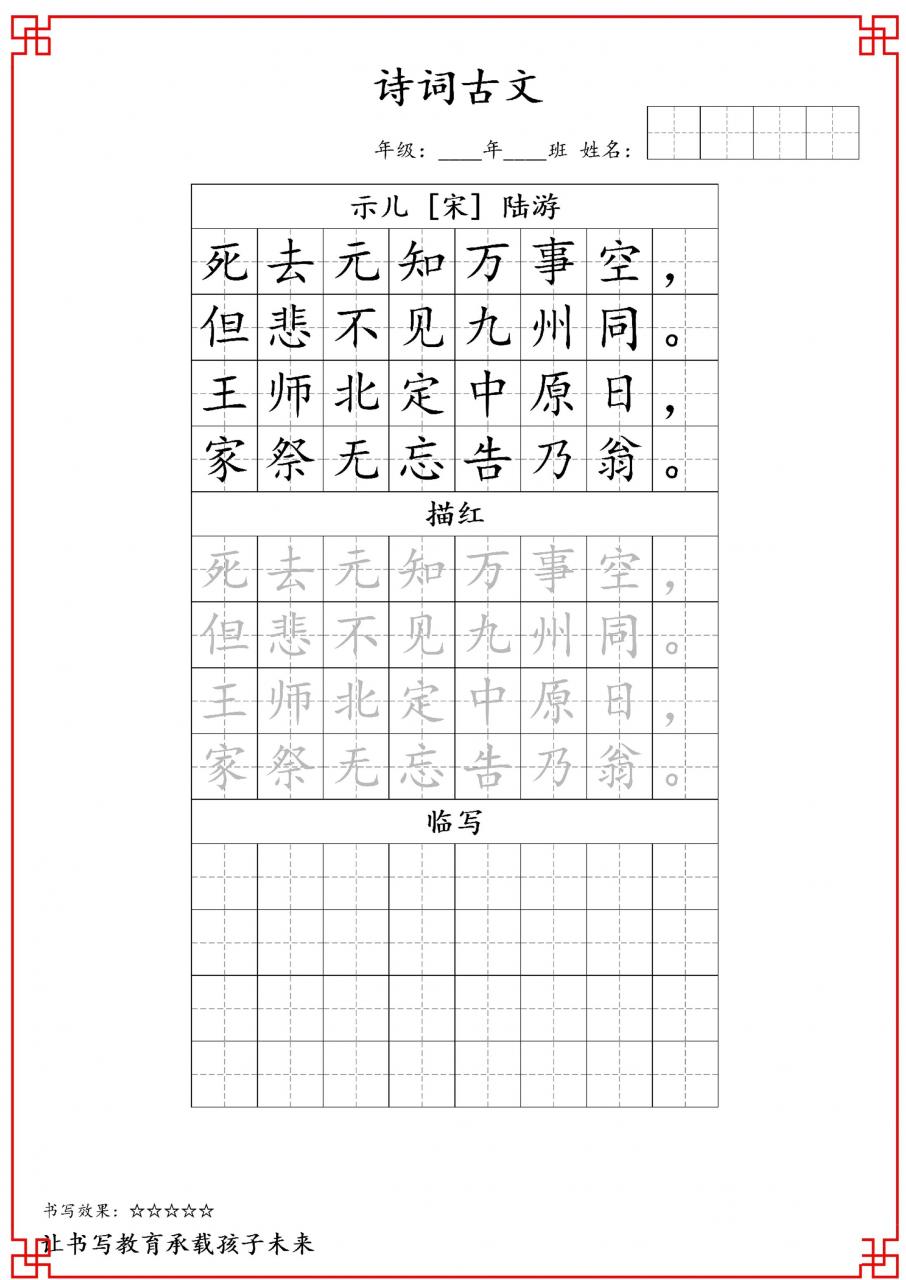 诗词古文
年级：____年____班 姓名：
示儿 [宋] 陆游
死去元知万事空，
但悲不见九州同。
王师北定中原日，
家祭无忘告乃翁。
描红
死去元知万事空，
但悲不见九州同。
王师北定中原日，
家祭无忘告乃翁。
临写
书写效果：☆☆☆☆☆
让书写教育承载孩子未来